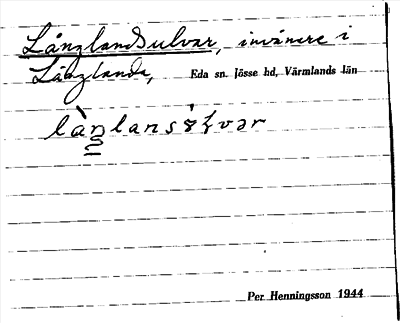 Långlandsulvar, invånere i
Långlanda, Eda sn. Jösse hd, Värmlands län
làŋlansɤ́ʈvər
Per Henningsson 1944